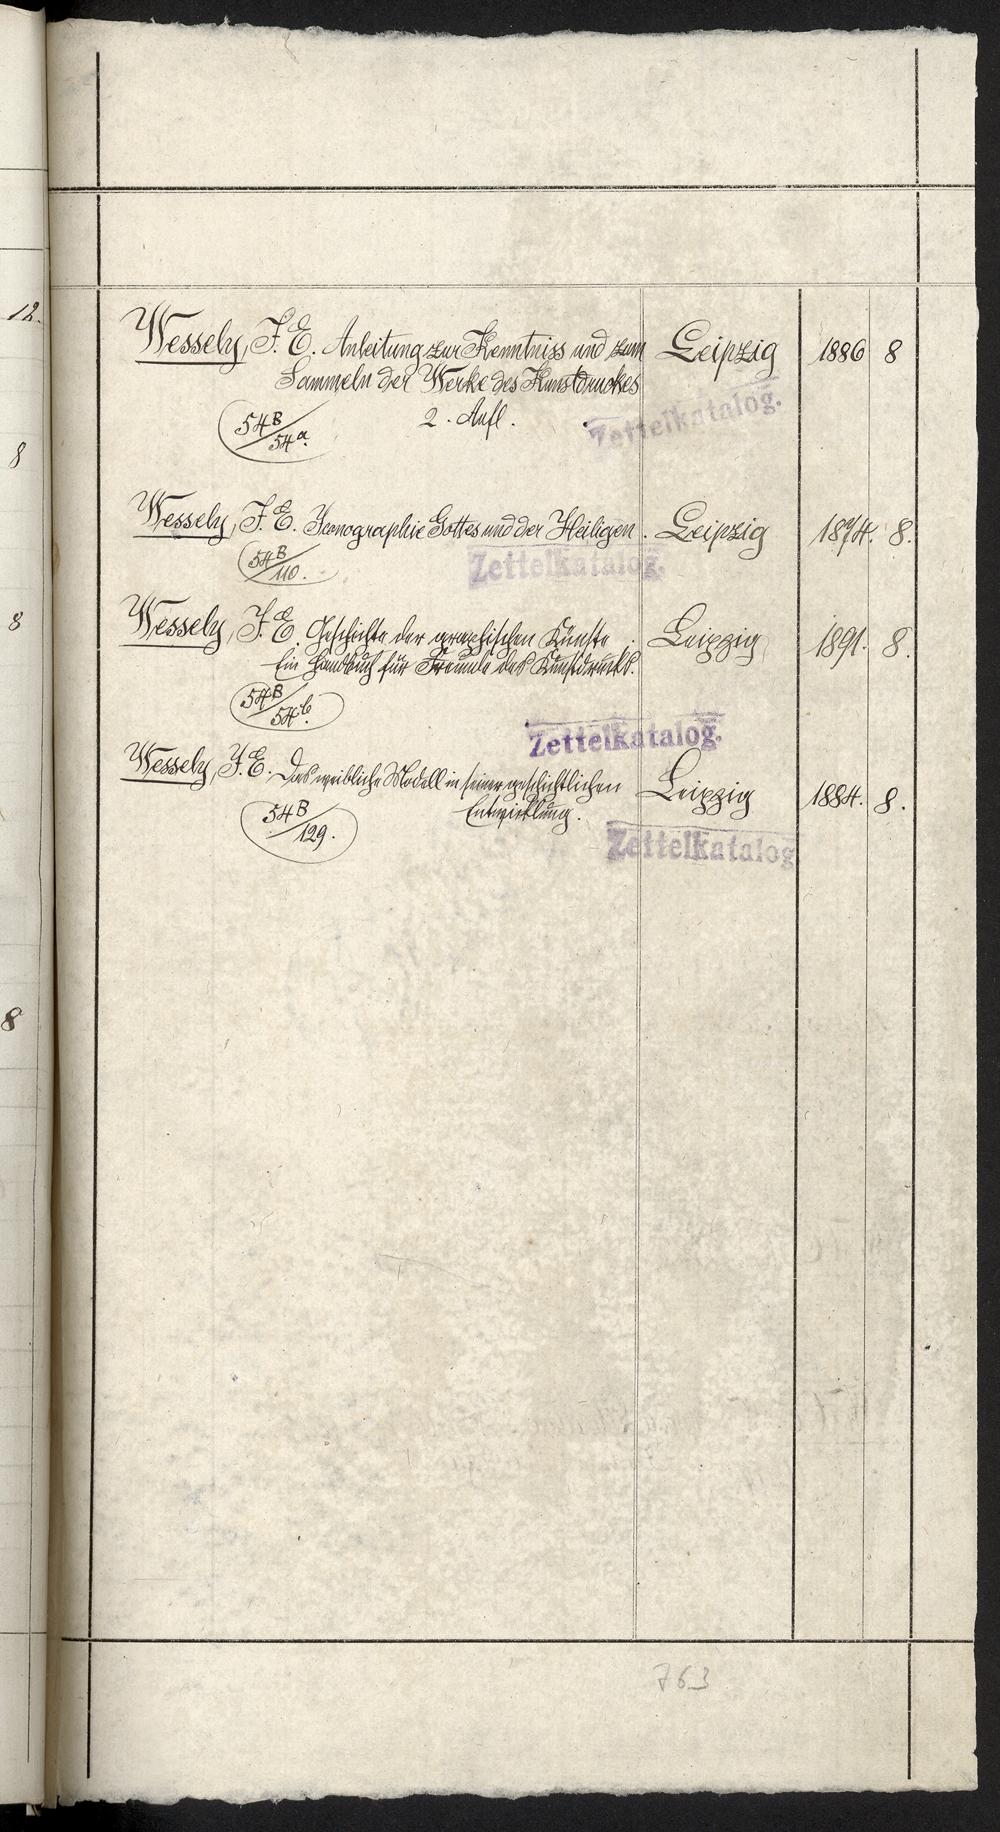 12.
Wessely, J. E. Anleitung zur Kenntniss und zum Leipzig 1886 8
Sammeln der Werke des Kunstdruckes
2. Aufl.
54 B/54 a.
Zettelkatalog.
8
Wessely, J. E. Iconographie Gottes und der Heiligen. Leipzig 1874. 8.
54 B/110.
Zettelkatalog.
8
Wessely, J. E. Geschichte der graphischen Künste. Leipzig 1891. 8.
Ein Handbuch für Freunde des Kunstdrucks.
54 B/54 b.
Zettelkatalog.
Wessely, J. E. Das weibliche Modell in seiner geschichtlichen Leipzig 1884. 8.
Entwicklung.
54 B/129.
Zettelkatalog
8
763